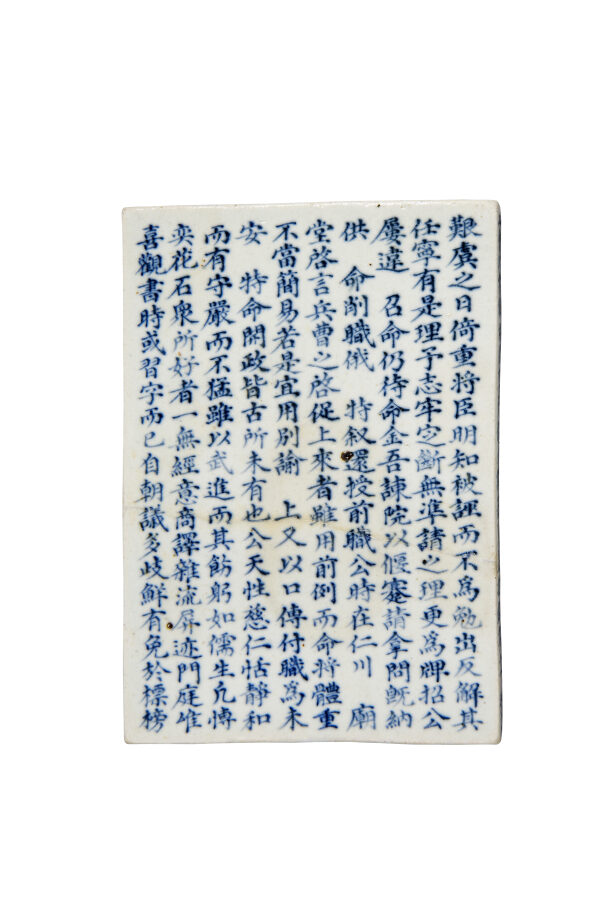 艱虞之日倚重將臣明知被誣而不爲勉出反解其
任寧有是理予志牢定斷無準請之理更爲牌招公
屢違 召命仍待命金吾諫院以偃蹇請拿問旣納
供 命削職俄 特叙還授前職公時在仁川 廟
堂啓言兵曹之啓促上來者雖用前例而命將體重
不當簡易若是宜用別諭 上又以口傳付職爲未
安 特命開政皆古所未有也公天性慈仁恬靜和
而有守嚴而不猛雖以武進而其飭躬如儒生凡博
奕花石衆所好者一無經意商譯雜流屛迹門庭唯
喜觀書時或習字而已自朝議多歧鮮有免於標榜